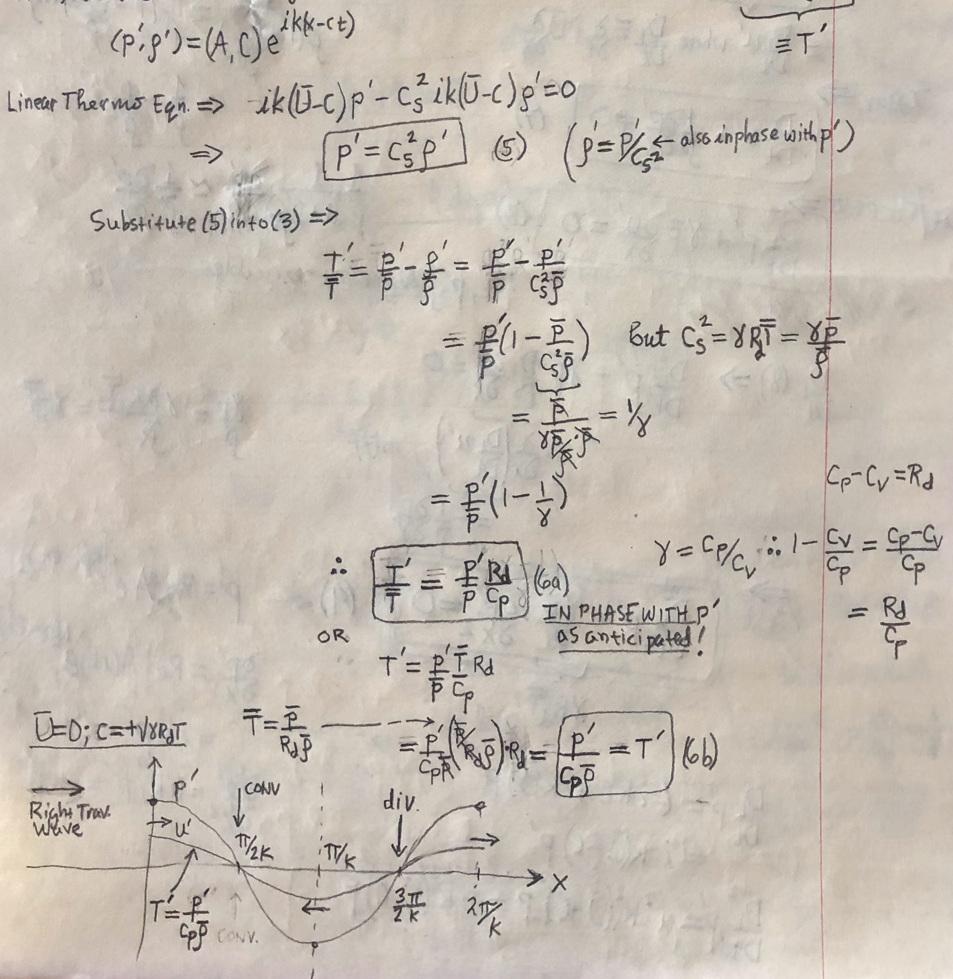 (p', ρ') = (A, C) e^{ik(x-ct)}
≡ T'
Linear Thermo Eqn. ⇒ ik(Ū-c)p' - C_s² ik(Ū-c)ρ' = 0
⇒ p' = C_s² ρ' (5) (ρ' = p'/C_s² ← also in phase with p')
Substitute (5) into (3) ⇒
T'/T̄ = p'/p̄ - ρ'/ρ̄ = p'/p̄ - p'/(C_s² ρ̄)
= p'/p̄ (1 - p̄/(C_s² ρ̄)) but C_s² = γR_dT̄ = γp̄/ρ̄
= p̄/(γp̄/ρ̄ · ρ̄) = 1/γ
= p'/p̄ (1 - 1/γ)
C_p - C_v = R_d
γ = C_p/C_v ∴ 1 - C_v/C_p = (C_p - C_v)/C_p
= R_d/C_p
∴ T'/T̄ = p'/p̄ R_d/C_p (6a)
IN PHASE WITH p'
as anticipated!
OR
T' = p'/p̄ T̄/C_p R_d
Ū=0; c=+√γR_dT
T̄ = p̄/(R_d ρ̄) ---→ = p'/(C_p p̄) (p̄/(R_d ρ̄)) · R_d = p'/(C_p ρ̄) = T' (6b)
→
Right Trav.
Wave
p'
u'
CONV
div.
π/2k
π/k
3π/2k
2π/k
x
T' = p'/(C_p ρ̄)
CONV.